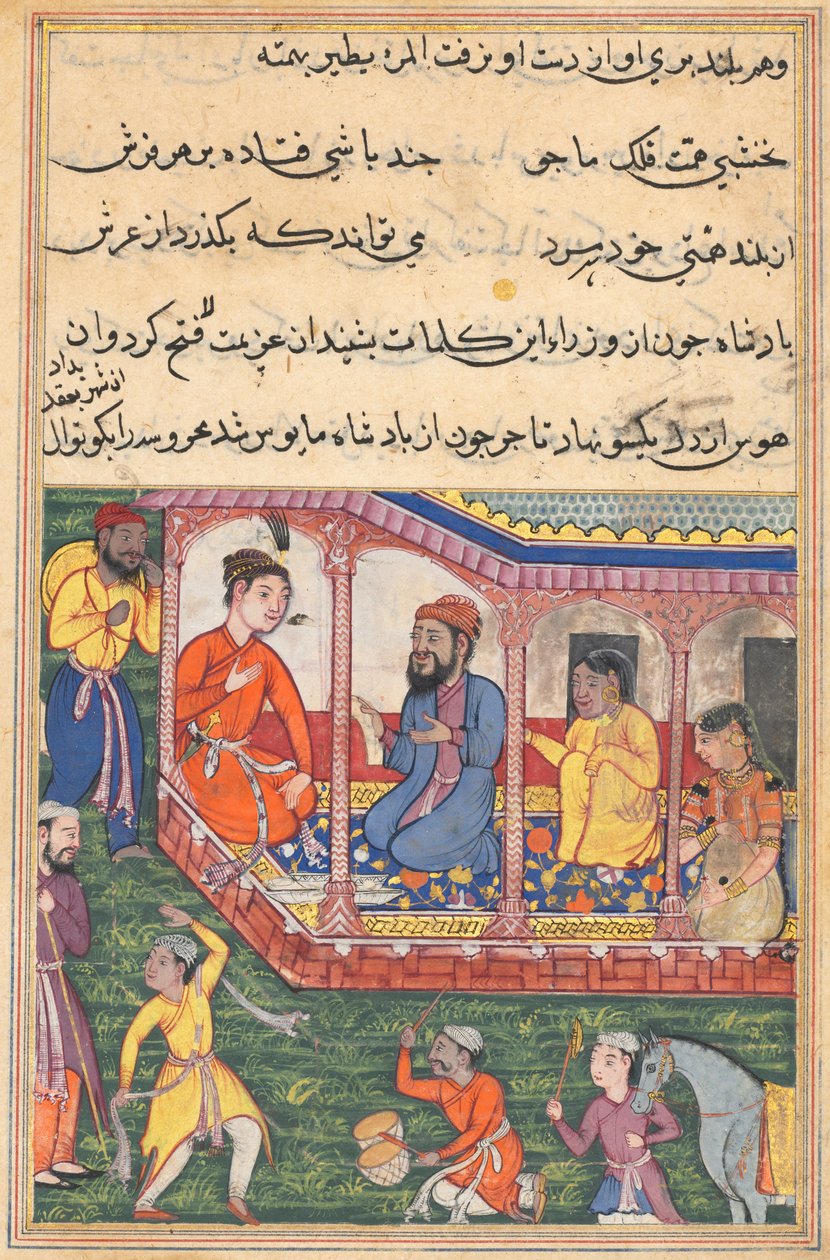 وهم بلند بري او از دست او نرفت المرء يطير بهمته
نخشبي همّت فلک ما جو جند باشي فتاده بر هر فرش
از بلند همّتي خود مرد مي تواند که بکذرد از عرش
بادشاه جون از وزراء اين کلمات بشنيد ان عزيمت لا فتح کرد و ان
هوس از دل يکسو نهاد تاجر جون از بادشاه مايوس شد عروسرا بکوتوال
ان شهر بعقد
بداد